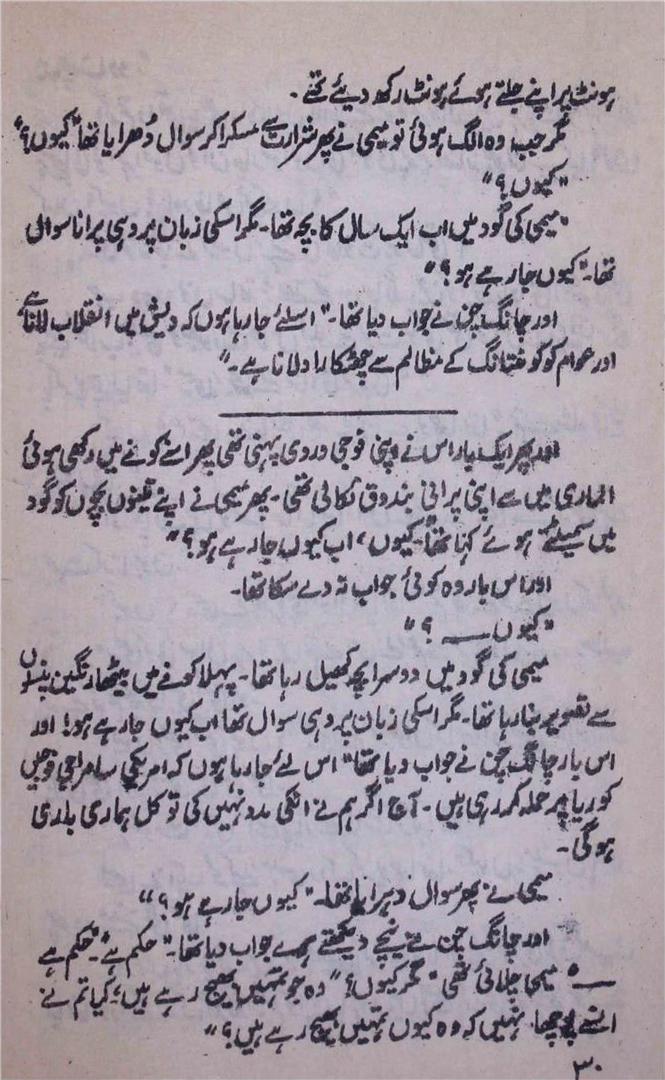 ہونٹ پر اپنے جلتے ہوئے ہونٹ رکھ دیئے تھے۔
مگر جب وہ الگ ہوئی تو میمی نے پھر شرارت سے مسکرا کر سوال دُھرایا تھا "کیوں؟"
"کیوں؟"
میمی کی گود میں اب ایک سال کا بچہ تھا۔ مگر اسکی زبان پر وہی پرانا سوال
تھا۔ "کیوں جا رہے ہو؟"
اور چانگ چن نے جواب دیا تھا۔ "اسلئے جا رہا ہوں کہ دیش میں انقلاب لانا ہے
اور عوام کو کومنتانگ کے مظالم سے چھٹکارا دلانا ہے۔"
اور پھر ایک بار اس نے اپنی فوجی وردی پہنی تھی پھر اسنے کونے میں رکھی ہوئی
الماری میں سے اپنی پرانی بندوق نکالی تھی۔ پھر میمی نے اپنے تینوں بچوں کو گود
میں سمیٹتے ہوئے کہا تھا "کیوں، اب کیوں جا رہے ہو؟"
اور اس بار وہ کوئی جواب نہ دے سکا تھا۔
"کیوں ـــــ ؟"
میمی کی گود میں دوسرا بچہ کھیل رہا تھا۔ پہلا کونے میں بیٹھا رنگین پنسلوں
سے تصویر بنا رہا تھا۔ مگر اسکی زبان پر وہی سوال تھا اب کیوں جا رہے ہو! اور
اس بار چانگ چن نے جواب دیا تھا "اس لئے جا رہا ہوں کہ امریکی سامراجی فوجیں
کوریا پر حملہ کر رہی ہیں۔ آج اگر ہم نے انکی مدد نہیں کی تو کل ہماری باری
ہوگی۔
میمی نے پھر سوال دہرایا تھا۔ "کیوں جا رہے ہو؟"
اور چانگ چن نے نیچے دیکھتے ہوئے جواب دیا تھا۔ "حکم ہے"۔ "حکم ہے
ـــ" میمی چلائی تھی "مگر کیوں؟" "وہ جو تمہیں بھیج رہے ہیں، کیا تم نے
انسے پوچھا نہیں کہ وہ کیوں تمہیں بھیج رہے ہیں؟"
۳۰